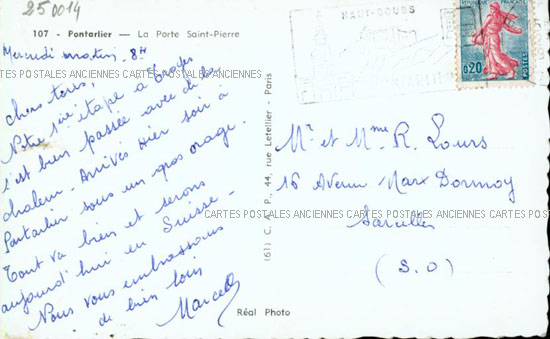 250014
107 - Pontarlier — La Porte Saint-Pierre
Mercredi matin - 8H
chers tous,
Notre 1ère étape à
s'est bien passée avec de la
chaleur - Arrivés Hier soir à
Pontarlier sous un gros orage.
Tout va bien et serons
aujourd'hui en Suisse -
Nous vous embrassons
de bien loin
Marcel
(61) C. A. P., 44, rue Letellier - Paris
Réal Photo
HAUT-DOUBS
0,20
POSTES
Mr et Mme R. Lours
16 Avenue Marx Dormoy
Sarcelles
(S.O)
CARTES POSTALES ANCIENNES CARTES POSTALES ANCIENNES CARTES POSTALES ANCIENNES
CARTES POSTALES ANCIENNES CARTES POSTALES ANCIENNES CARTES POSTALES